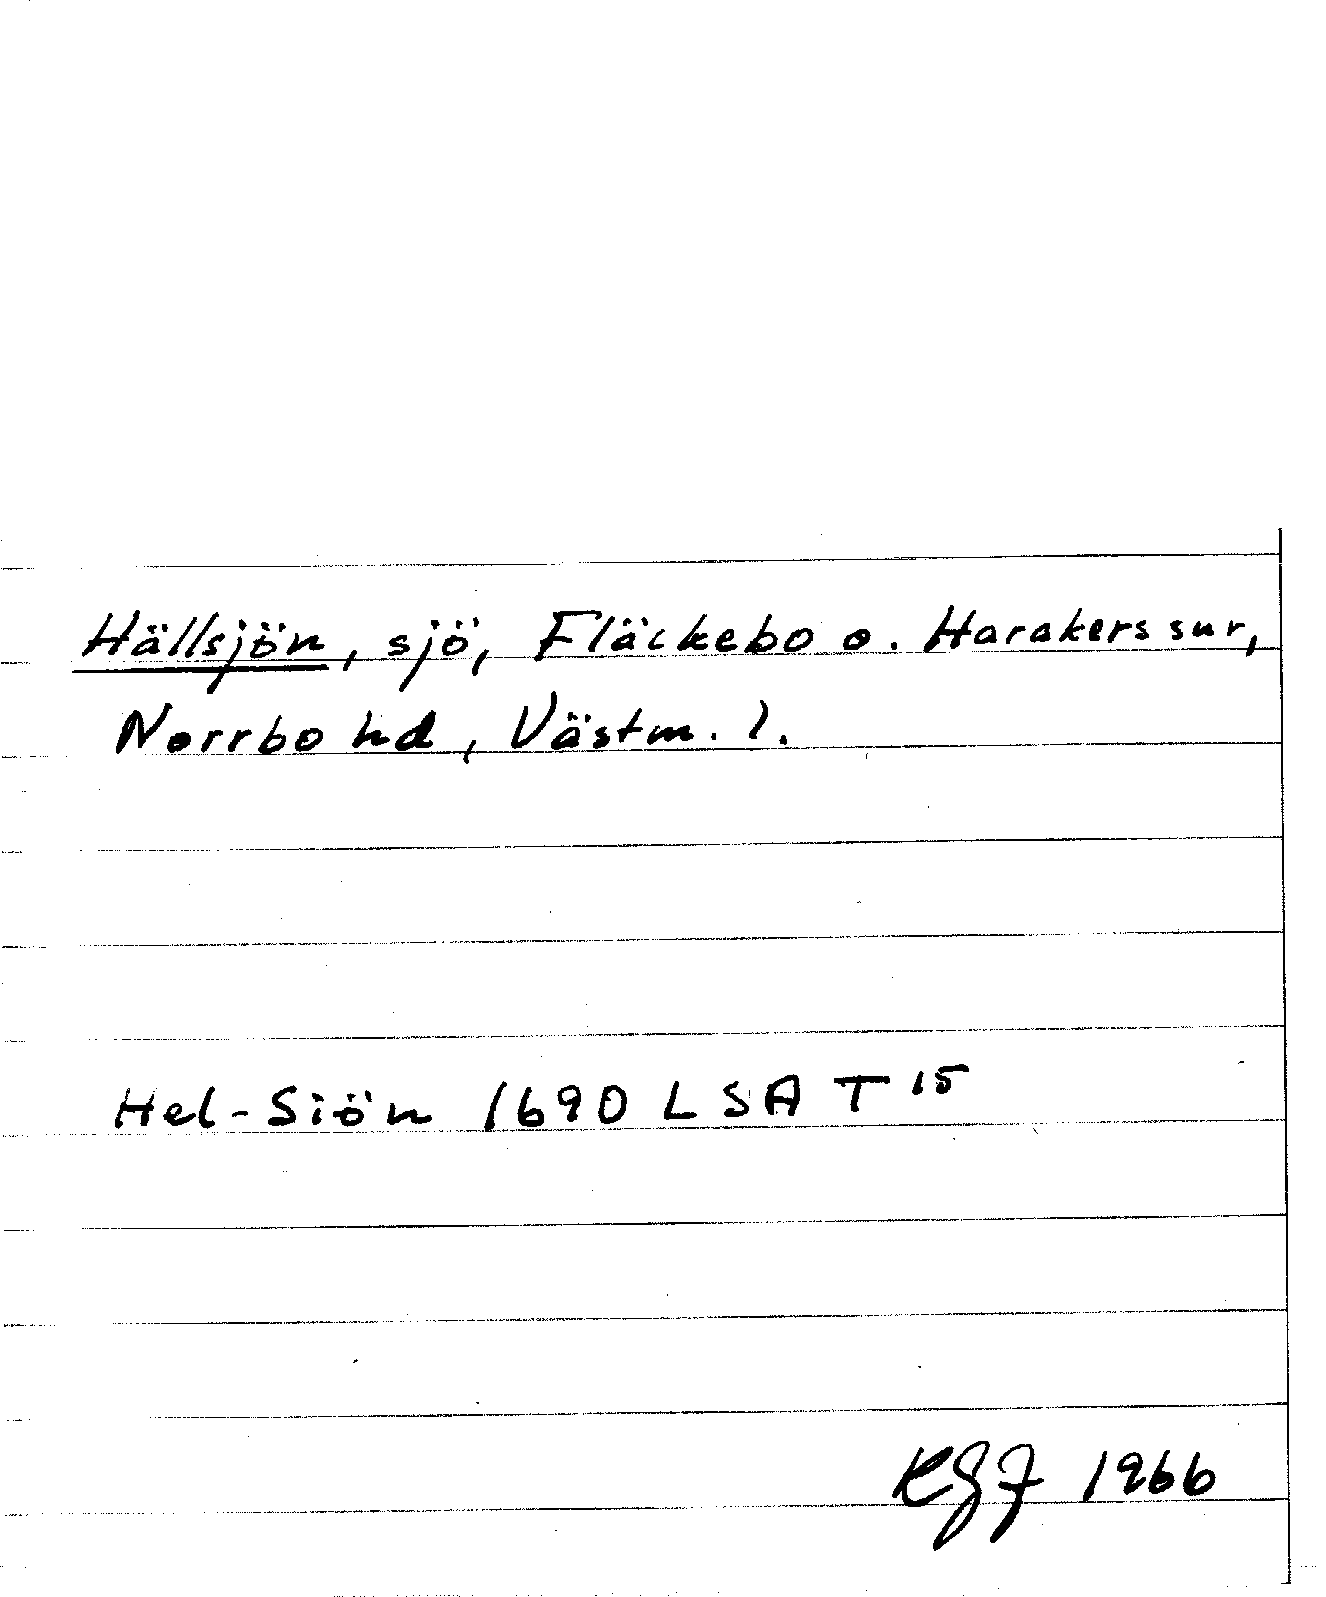 Hällsjön, sjö, Fläckebo o. Harakers snr,
Norrbo hd, Västm. l.
Hel-Siön 1690 LSA T 15
KGF 1966